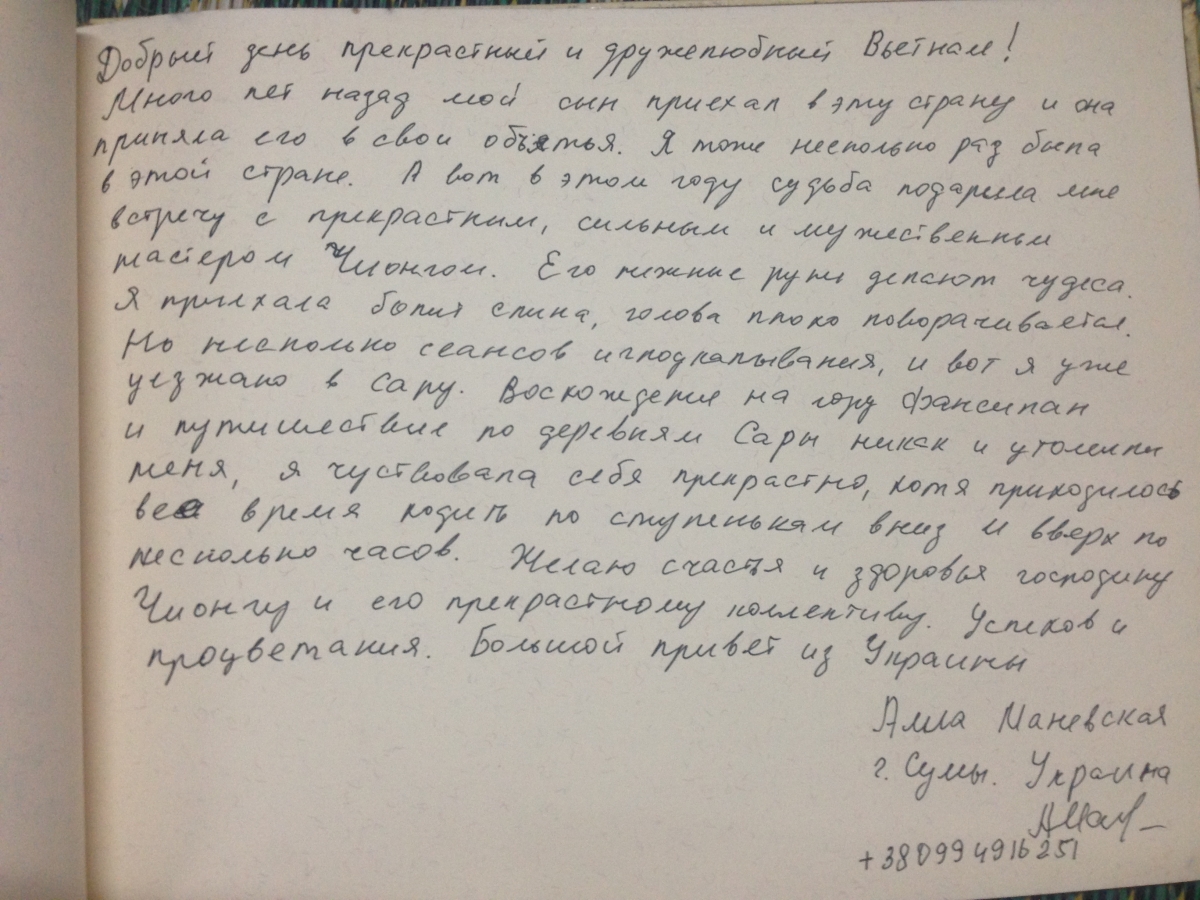 Добрый день прекрастный и дружелюбный Вьетнам!
Много лет назад мой сын приехал в эту страну и она
приняла его в свои объятья. Я тоже несколько раз была
в этой стране. А вот в этом году судьба подарила мне
встречу с прекрастним, сильным и мужественным
мастером Чионгом. Его нежные руки делают чудеса.
Я приехала болит спина, голова плохо поворачивается.
Но несколько сеансов иглоукалывания, и вот я уже
уезжаю в Сапу. Восхождение на гору Фансипан
и путишествие по деревням Сапы никак и утомили
меня, я чуствовала себя прекрастно, хотя приходилось
все время ходить по ступенькам вниз и вверх по
несколько часов. Желаю счастья и здоровья господину
Чионгу и его прекрастному коллективу. Успехов и
процветания. Большой привет из Украины
Алла Маневская
г. Сумы. Украина
+380994916251